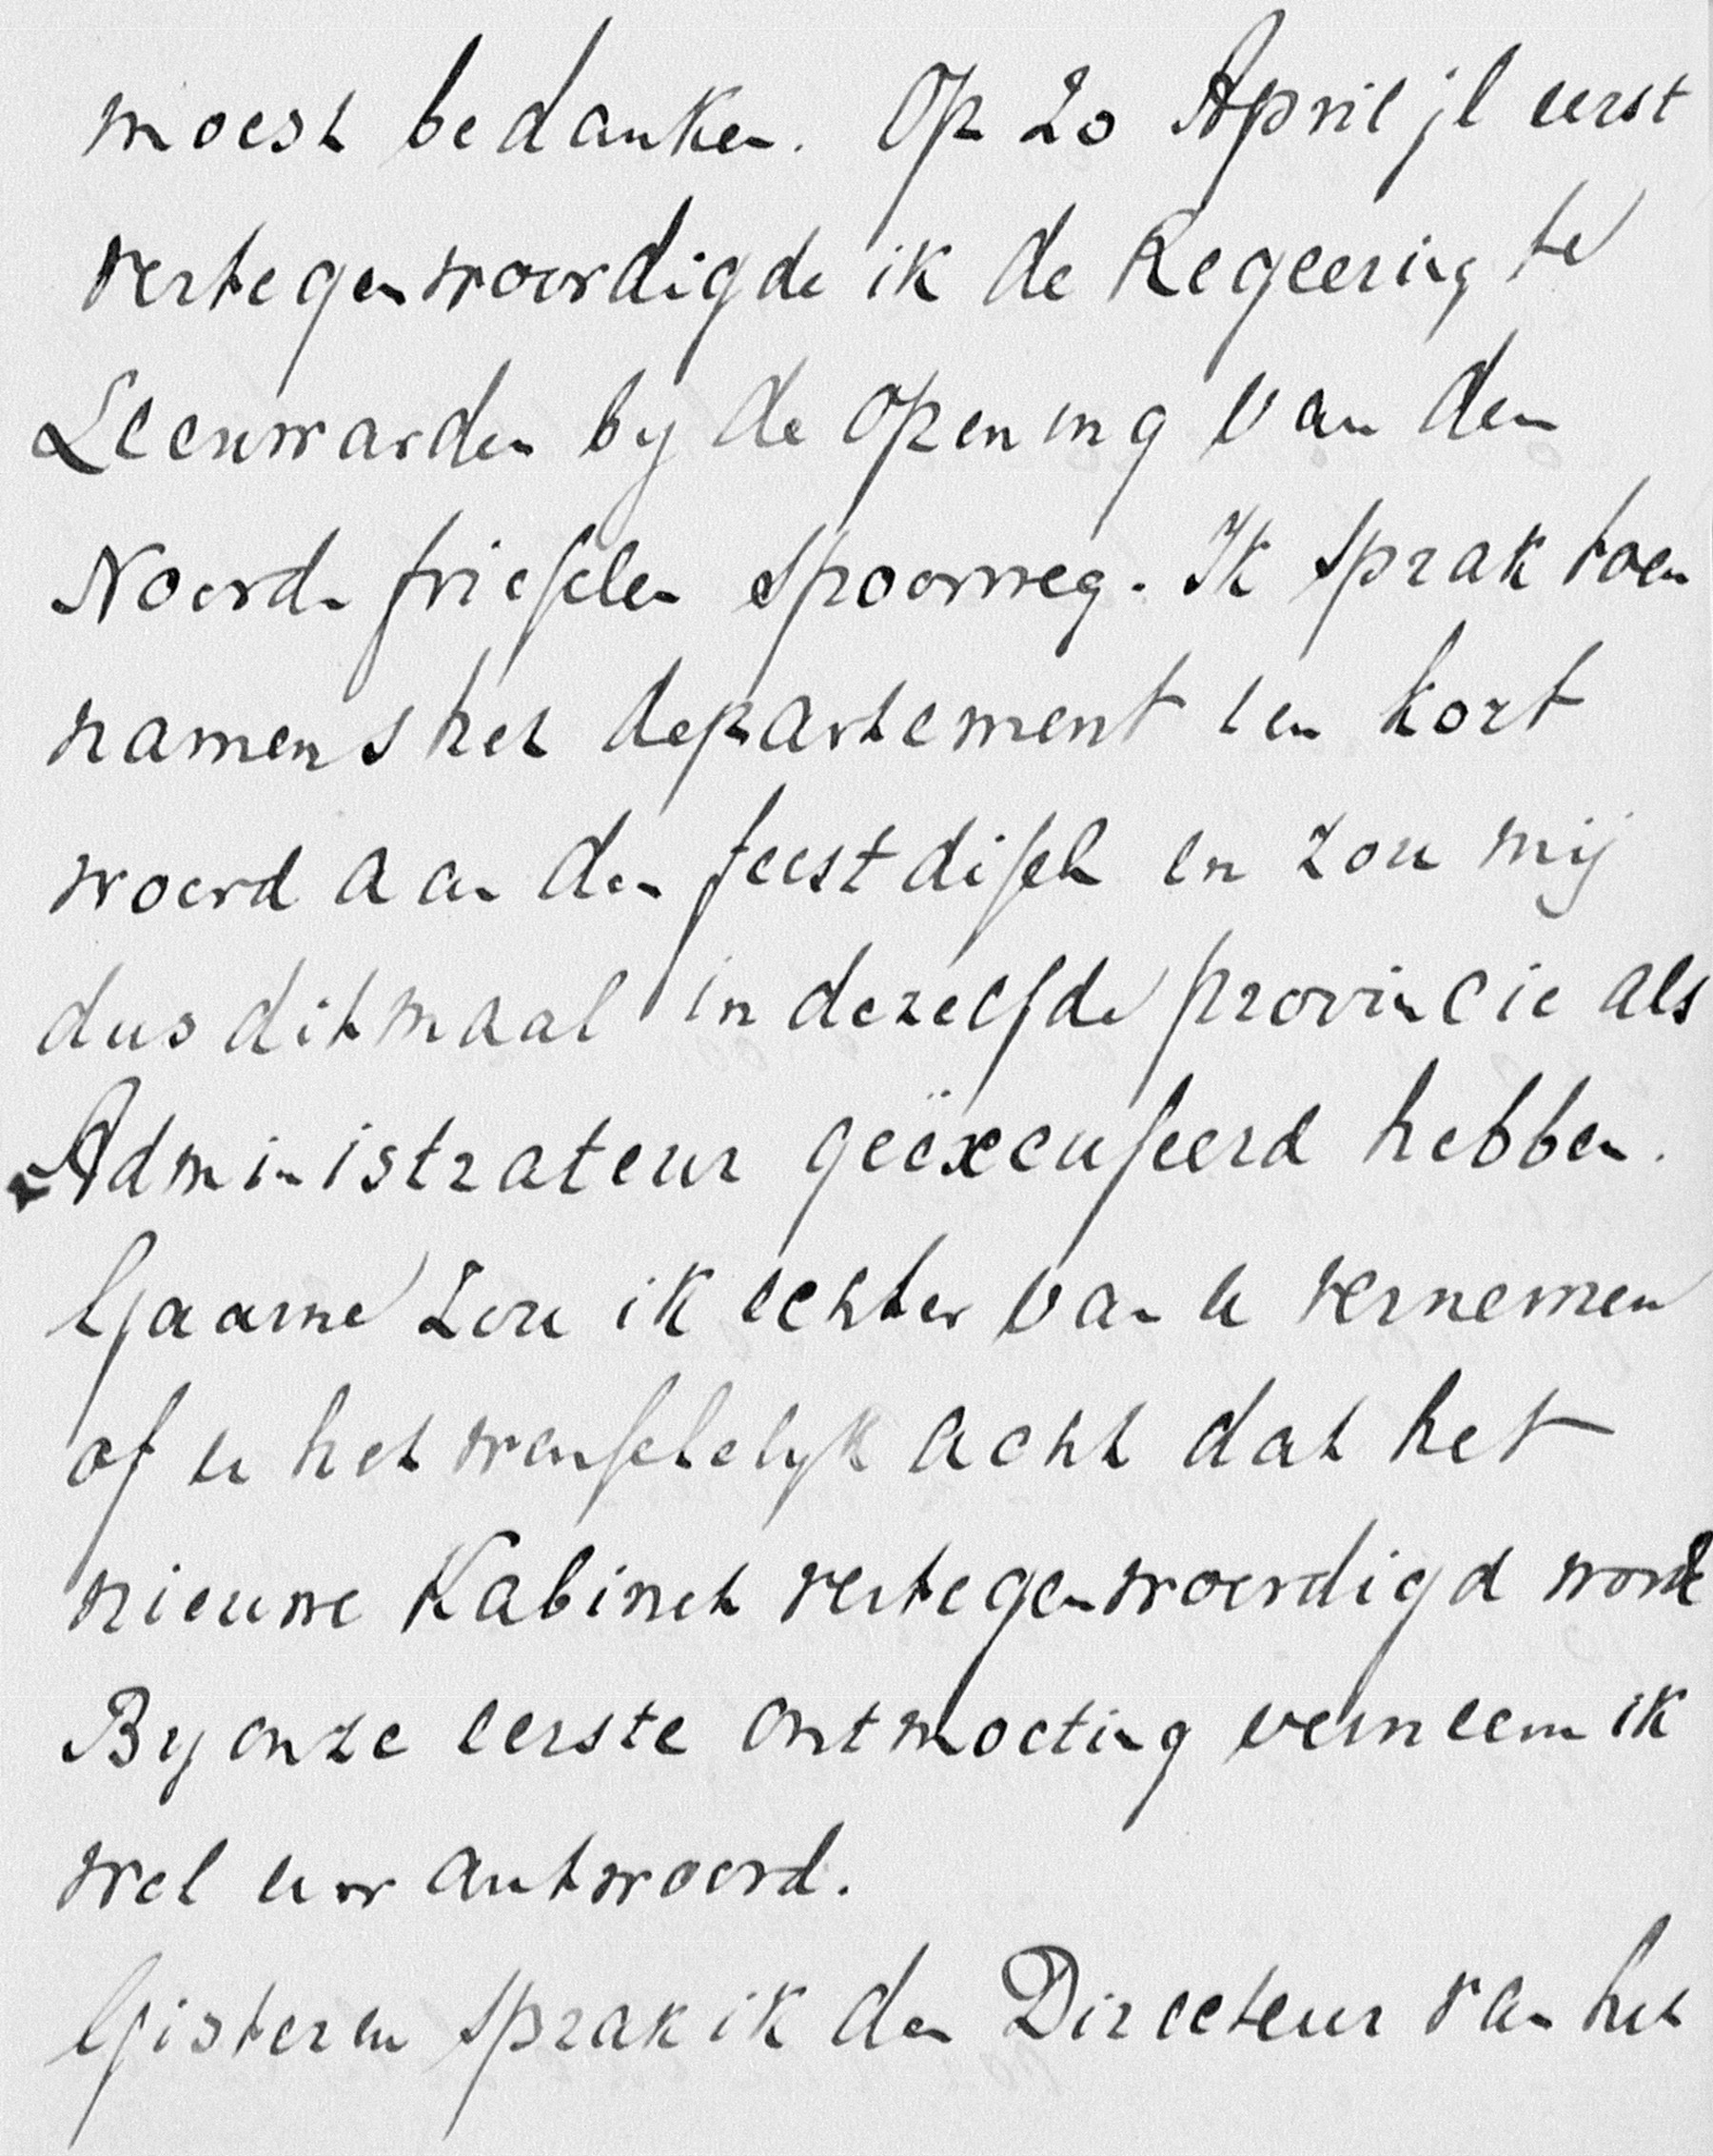 moest bedanken. Op 20 April jl eerst
vertegenwoordigde ik de Regeering te
Leeuwarden by de opening van den
Noord-frieschen spoorweg. Ik sprak toen
namens het departement een kort
woord aan den feestdisch en zou mij
dus ditmaal in dezelfde provincie als
Administrateur geëxcuseerd hebben.
Gaarne zou ik echter van u vernemen
of u het wenschelyk acht dat het
nieuwe Kabinet vertegenwoordigd worde
By onze eerste ontmoeting verneem ik
wel uw antwoord.
Gisteren sprak ik den Directeur van het